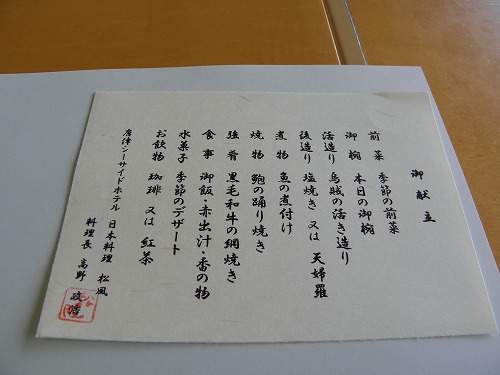 御献立
前菜 季節の前菜
御椀 本日の御椀
活造り 烏賊の活き造り
後造り 塩焼き 又は 天婦羅
煮物 魚の煮付け
焼物 鮑の踊り焼き
強肴 黒毛和牛の網焼き
食事 御飯・赤出汁・香の物
水菓子 季節のデザート
お飲物 珈琲 又は 紅茶
唐津シーサイドホテル 日本料理 松風
料理長 高野 政